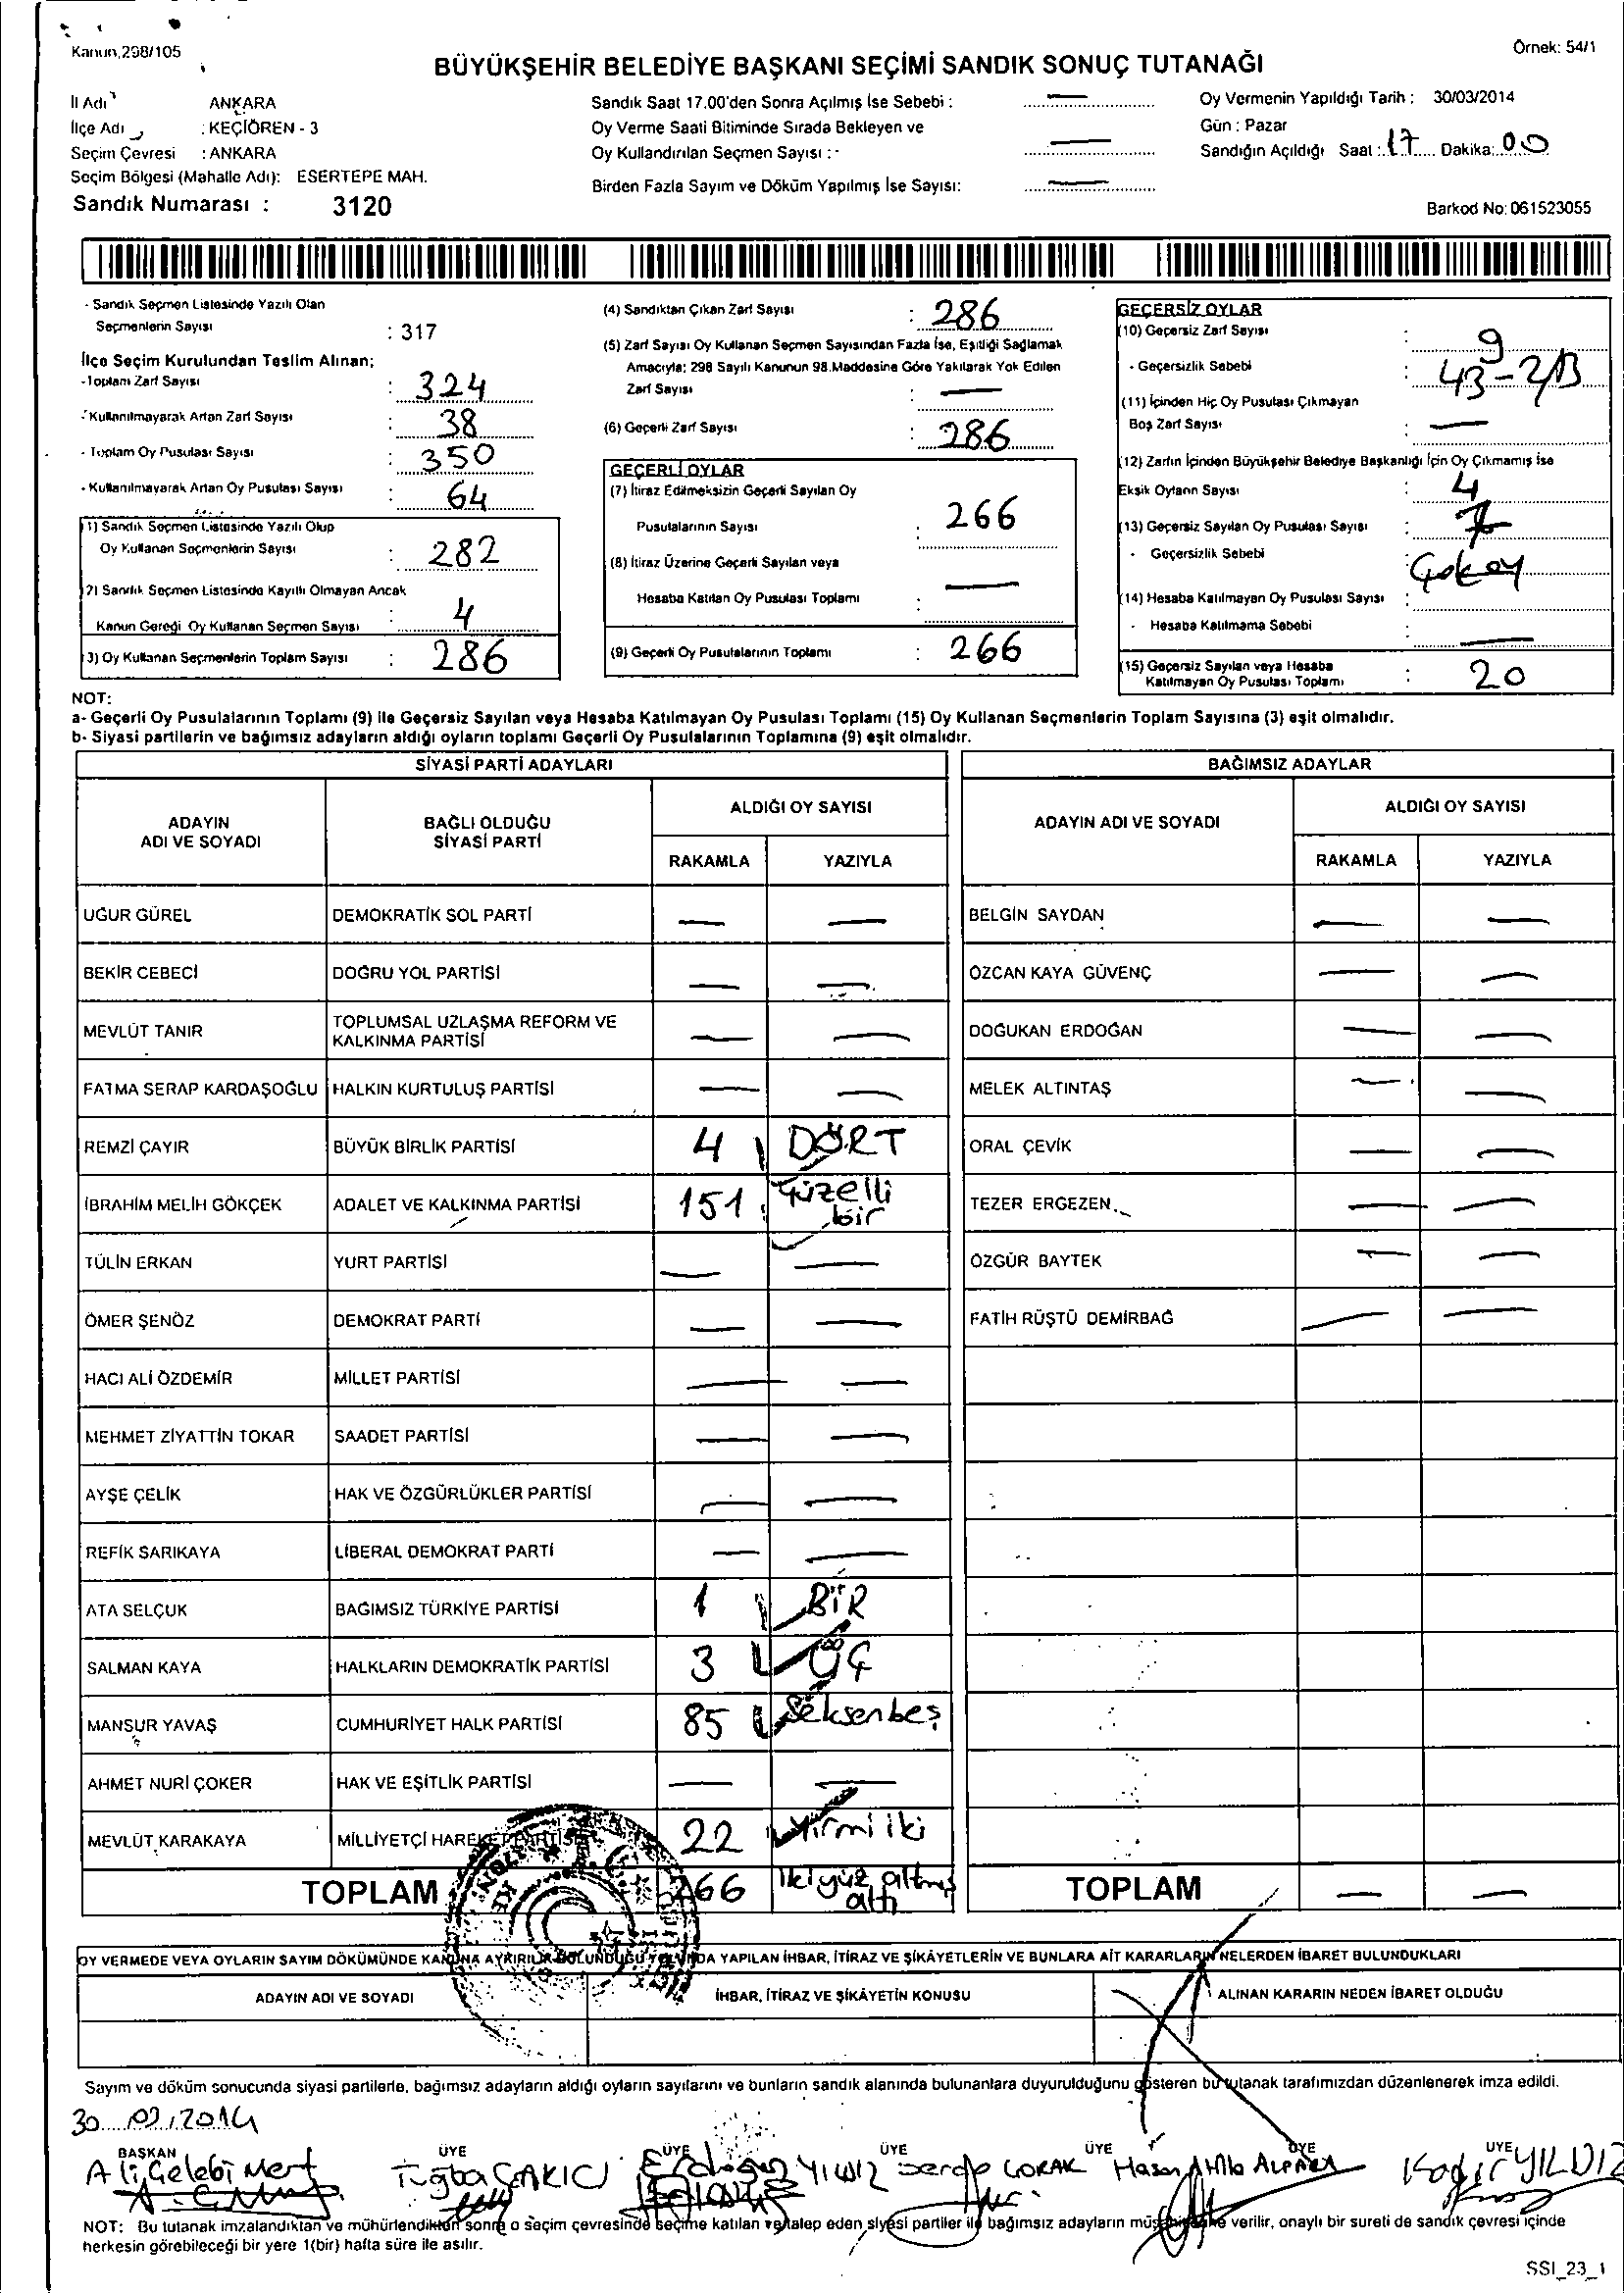 Kanun,298/105
Örnek: 54/1
BÜYÜKŞEHİR BELEDİYE BAŞKANI SEÇİMİ SANDIK SONUÇ TUTANAĞI
İl Adı ANKARA
İlçe Adı : KEÇİÖREN - 3
Seçim Çevresi : ANKARA
Seçim Bölgesi (Mahalle Adı): ESERTEPE MAH.
Sandık Numarası : 3120
Sandık Saat 17.00'den Sonra Açılmış İse Sebebi : —
Oy Verme Saati Bitiminde Sırada Bekleyen ve
Oy Kullandırılan Seçmen Sayısı : —
Birden Fazla Sayım ve Döküm Yapılmış İse Sayısı: —
Oy Vermenin Yapıldığı Tarih : 30/03/2014
Gün : Pazar
Sandığın Açıldığı Saat : 17 Dakika: 00
Barkod No: 061523055
- Sandık Seçmen Listesinde Yazılı Olan
Seçmenlerin Sayısı : 317
İlçe Seçim Kurulundan Teslim Alınan;
- Toplam Zarf Sayısı : 324
- Kullanılmayarak Artan Zarf Sayısı : 38
- Toplam Oy Pusulası Sayısı : 350
- Kullanılmayarak Artan Oy Pusulası Sayısı : 64
(1) Sandık Seçmen Listesinde Yazılı Olup
Oy Kullanan Seçmenlerin Sayısı : 282
(2) Sandık Seçmen Listesinde Kayıtlı Olmayan Ancak
Kanun Gereği Oy Kullanan Seçmen Sayısı : 4
(3) Oy Kullanan Seçmenlerin Toplam Sayısı : 286
(4) Sandıktan Çıkan Zarf Sayısı : 286
(5) Zarf Sayısı Oy Kullanan Seçmen Sayısından Fazla İse, Eşitliği Sağlamak
Amacıyla; 298 Sayılı Kanunun 98.Maddesine Göre Yakılarak Yok Edilen
Zarf Sayısı : —
(6) Geçerli Zarf Sayısı : 286
GEÇERLİ OYLAR
(7) İtiraz Edilmeksizin Geçerli Sayılan Oy
Pusulalarının Sayısı : 266
(8) İtiraz Üzerine Geçerli Sayılan veya
Hesaba Katılan Oy Pusulası Toplamı : —
(9) Geçerli Oy Pusulalarının Toplamı : 266
GEÇERSİZ OYLAR
(10) Geçersiz Zarf Sayısı : 9
- Geçersizlik Sebebi : 43-2/B
(11) İçinden Hiç Oy Pusulası Çıkmayan
Boş Zarf Sayısı : —
(12) Zarfın İçinden Büyükşehir Belediye Başkanlığı İçin Oy Çıkmamış İse
Eksik Oyların Sayısı : 4
(13) Geçersiz Sayılan Oy Pusulası Sayısı : 7
- Geçersizlik Sebebi : Çok oy
(14) Hesaba Katılmayan Oy Pusulası Sayısı :
- Hesaba Katılmama Sebebi : —
(15) Geçersiz Sayılan veya Hesaba
Katılmayan Oy Pusulası Toplamı : 20
NOT:
a- Geçerli Oy Pusulalarının Toplamı (9) ile Geçersiz Sayılan veya Hesaba Katılmayan Oy Pusulası Toplamı (15) Oy Kullanan Seçmenlerin Toplam Sayısına (3) eşit olmalıdır.
b- Siyasi partilerin ve bağımsız adayların aldığı oyların toplamı Geçerli Oy Pusulalarının Toplamına (9) eşit olmalıdır.
SİYASİ PARTİ ADAYLARI
ADAYIN ADI VE SOYADI BAĞLI OLDUĞU SİYASİ PARTİ ALDIĞI OY SAYISI
RAKAMLA YAZIYLA
UĞUR GÜREL DEMOKRATİK SOL PARTİ — —
BEKİR CEBECİ DOĞRU YOL PARTİSİ — —
MEVLÜT TANIR TOPLUMSAL UZLAŞMA REFORM VE KALKINMA PARTİSİ — —
FATMA SERAP KARDAŞOĞLU HALKIN KURTULUŞ PARTİSİ — —
REMZİ ÇAYIR BÜYÜK BİRLİK PARTİSİ 4 DÖRT
İBRAHİM MELİH GÖKÇEK ADALET VE KALKINMA PARTİSİ 151 Yüzelli bir
TÜLİN ERKAN YURT PARTİSİ — —
ÖMER ŞENÖZ DEMOKRAT PARTİ — —
HACI ALİ ÖZDEMİR MİLLET PARTİSİ — —
MEHMET ZİYATTİN TOKAR SAADET PARTİSİ — —
AYŞE ÇELİK HAK VE ÖZGÜRLÜKLER PARTİSİ — —
REFİK SARIKAYA LİBERAL DEMOKRAT PARTİ — —
ATA SELÇUK BAĞIMSIZ TÜRKİYE PARTİSİ 1 BİR
SALMAN KAYA HALKLARIN DEMOKRATİK PARTİSİ 3 ÜÇ
MANSUR YAVAŞ CUMHURİYET HALK PARTİSİ 85 Seksenbeş
AHMET NURİ ÇOKER HAK VE EŞİTLİK PARTİSİ — —
MEVLÜT KARAKAYA MİLLİYETÇİ HAREKET PARTİSİ 22 Yirmi iki
TOPLAM 266 İkiyüz altmış altı
BAĞIMSIZ ADAYLAR
ADAYIN ADI VE SOYADI ALDIĞI OY SAYISI
RAKAMLA YAZIYLA
BELGİN SAYDAN — —
ÖZCAN KAYA GÜVENÇ — —
DOĞUKAN ERDOĞAN — —
MELEK ALTINTAŞ — —
ORAL ÇEVİK — —
TEZER ERGEZEN — —
ÖZGÜR BAYTEK — —
FATİH RÜŞTÜ DEMİRBAĞ — —
TOPLAM — —
OY VERMEDE VEYA OYLARIN SAYIM DÖKÜMÜNDE KANUNA AYKIRILIK BULUNDUĞU YOLUNDA YAPILAN İHBAR, İTİRAZ VE ŞİKÂYETLERİN VE BUNLARA AİT KARARLARIN NELERDEN İBARET BULUNDUKLARI
ADAYIN ADI VE SOYADI İHBAR, İTİRAZ VE ŞİKÂYETİN KONUSU ALINAN KARARIN NEDEN İBARET OLDUĞU
Sayım ve döküm sonucunda siyasi partilerle, bağımsız adayların aldığı oyların sayılarını ve bunların sandık alanında bulunanlara duyurulduğunu gösteren bu tutanak tarafımızdan düzenlenerek imza edildi.
30 03/2014
BAŞKAN ÜYE ÜYE ÜYE ÜYE ÜYE ÜYE
Ali Çelebi Mert Tuğba ÇAKICI Erdoğan YILDIZ Serap ÇORAK Hasan Atilla Kadir YILDIZ
NOT: Bu tutanak imzalandıktan ve mühürlendikten sonra o seçim çevresinde seçime katılan ve talep eden siyasi partiler ile bağımsız adayların müşahitlerine verilir, onaylı bir sureti de sandık çevresi içinde
herkesin görebileceği bir yere 1(bir) hafta süre ile asılır.
SSI_23_1